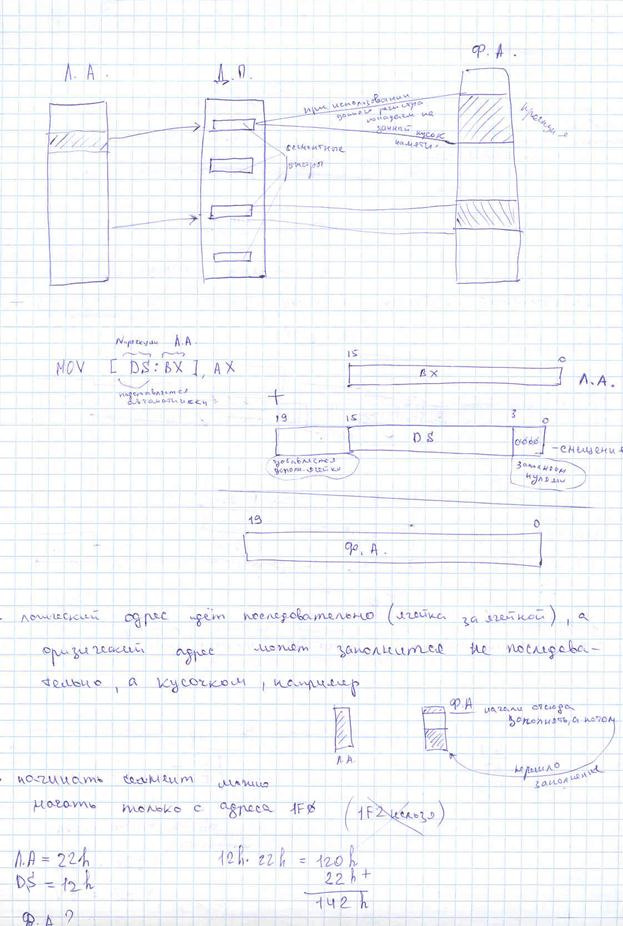 Л. А.
Д. П.
Ф. А.
при использовании
данного регистра
попадаем на
данной кусок
памяти.
сегментные
MOV [ DS : BX ], AX
Л.А.
подставляется
автоматически
15 0
BX
Л.А.
+
19 15 3 0
DS
0000
- смещение
добавляется
нулями
19 0
Ф. А.
логический адрес идёт последовательно (ячейка за ячейкой), а
физический адрес может заполнится не последова-
тельно, а кусочком, например
Ф.А начали отсюда
заполнять, а потом
Л.А.
заполнение
начинать сегмент можно
начать только с адреса 1F0 (1F2 нельзя)
Л.А = 22h 12h : 22h = 120h
DS = 12h 22h +
142 h
Ф. А ?